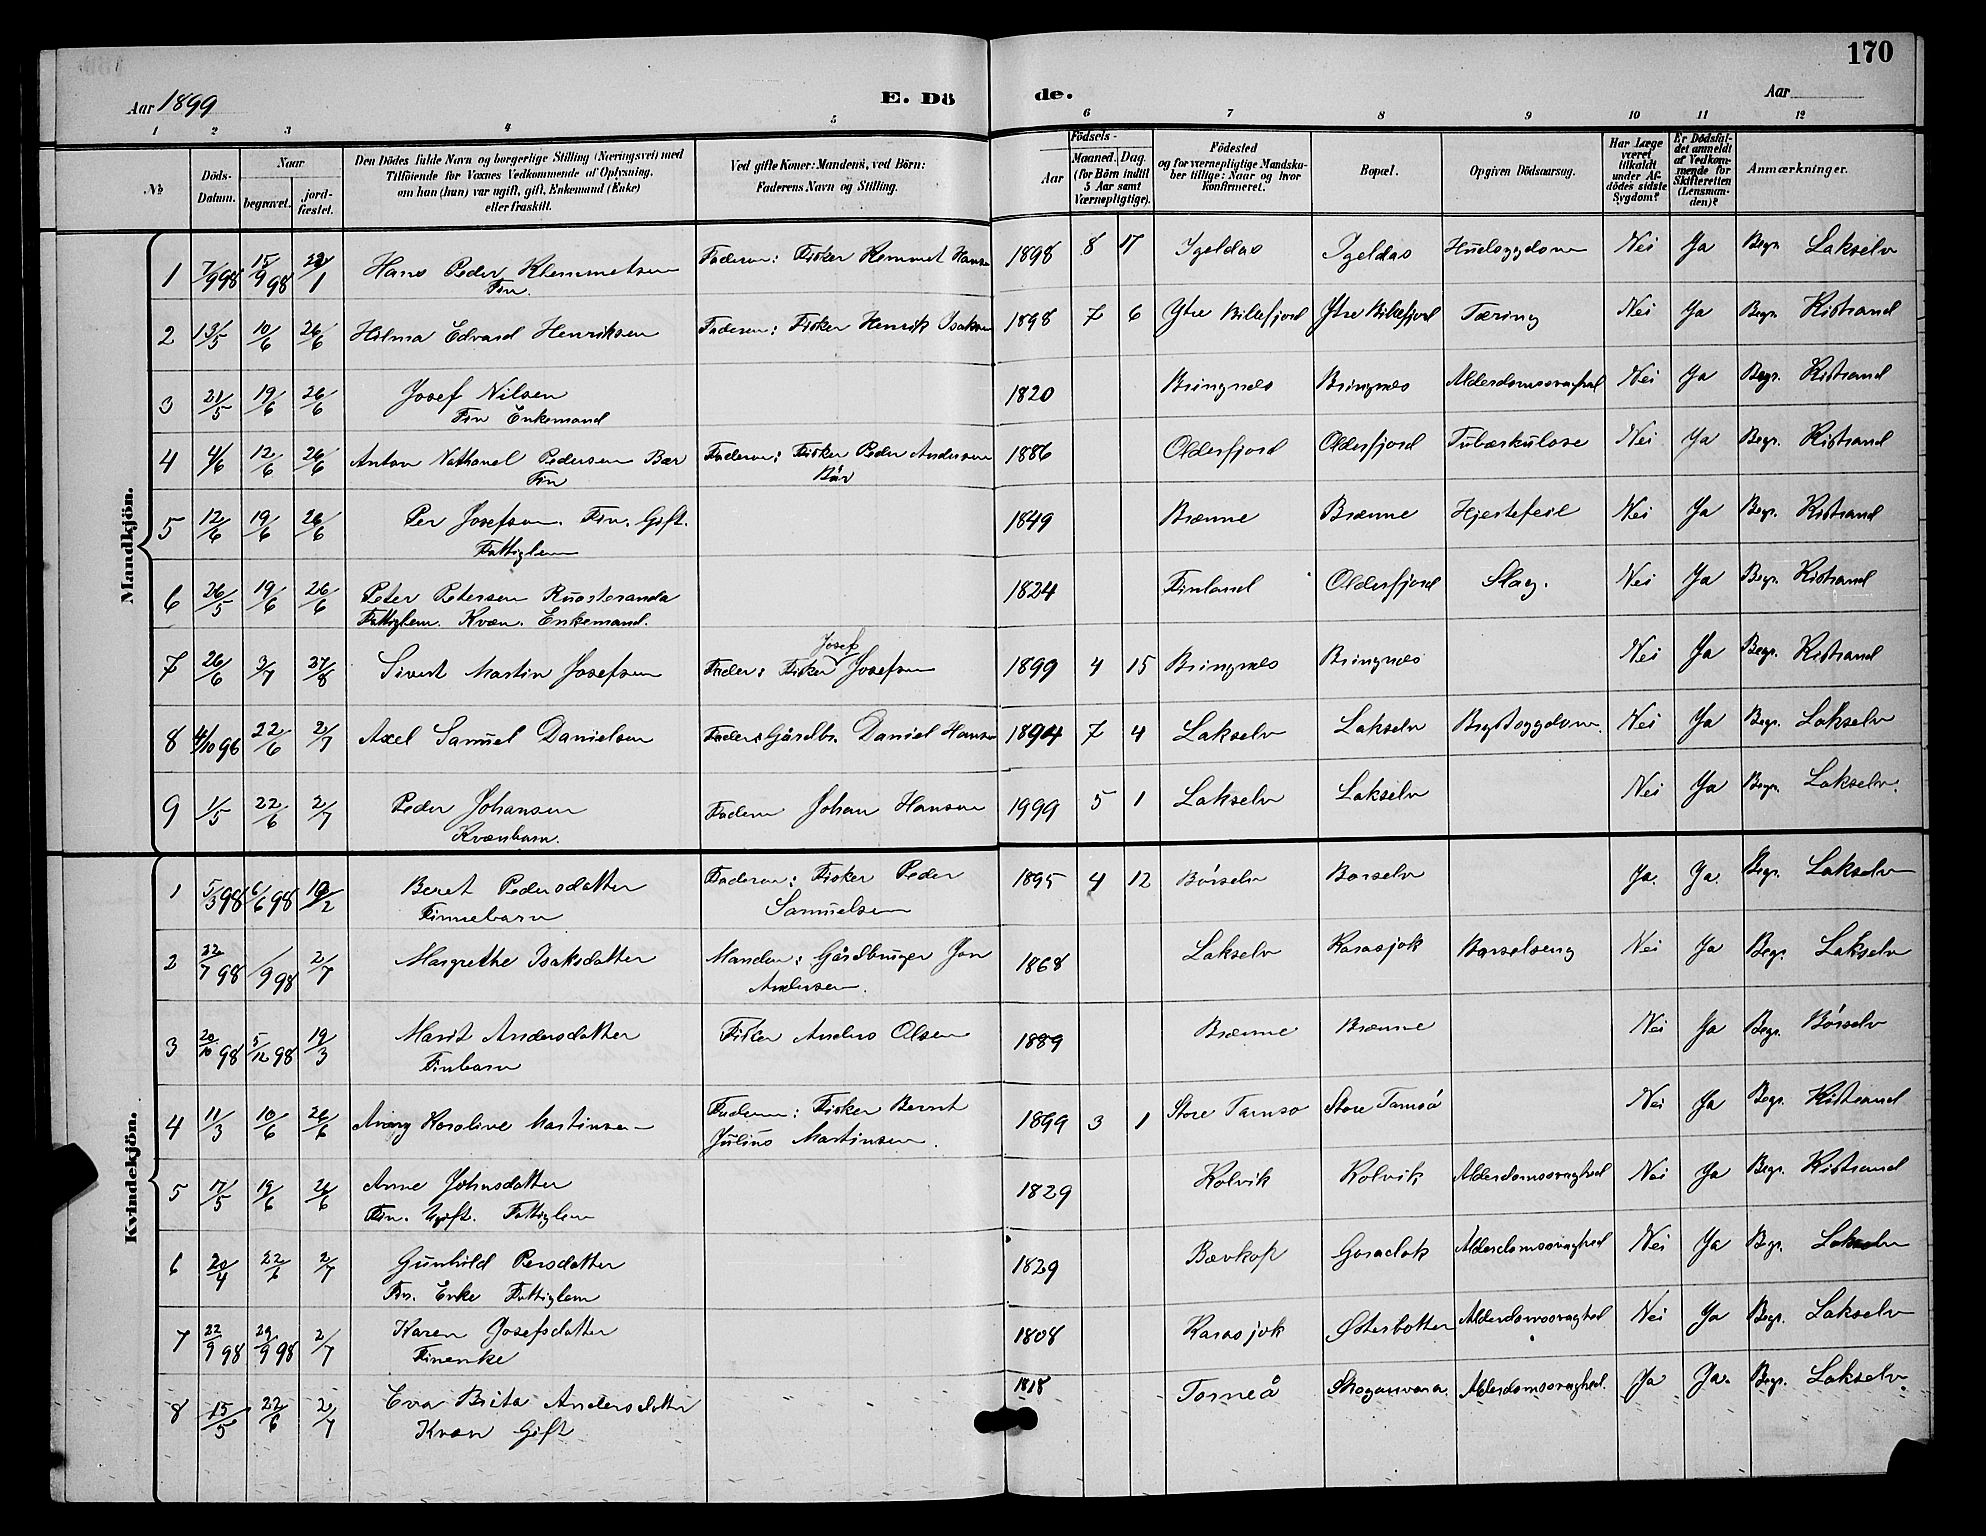 170
Aar 1899
E. Dö
de.
Aar
1 2 3 4 5 6 7 8 9 10 11 12
№
Döds-Datum.
Naar
begravet.
jord-fæstet.
Den Dödes fulde Navn og borgerlige Stilling (Næringsvei) med
Tilföiende for Voxnes Vedkommende af Oplysning,
om han (hun) var ugift, gift, Enkemand (Enke)
eller fraskilt.
Ved gifte Koner: Mandens, ved Börn:
Faderens Navn og Stilling.
Födsels-
Aar
Maaned. Dag.
(for Börn indtil
5 Aar samt
Værnepligtige).
Födested
og for værnepligtige Mandska-
ber tillige: Naar og hvor
konfirmeret.
Bopæl.
Opgiven Dödsaarsag.
Har Læge
været
tilkaldt
under Af-
dödes sidste
Sygdom?
Er Dödsfal-
det anmeldt
af Vedkom-
mende for
Skifteretten
(Lensman-
den)?
Anmærkninger.
Mandkjön.
1 7/9 98 15/9 98 22/1 Hans Peder Klemmetsen Faderen: Fisker Klemmet Hansen 1898 8 17 Igeldas Igeldas Hudsygdom Nei Ja Begr. Lakselv
Fin.
2 13/5 10/6 26/6 Hilma Edvard Henriksen Faderen: Fisker Henrik Isaksen 1898 7 6 Ytre Billefjord Ytre Billefjord Tæring Nei Ja Begr. Kistrand
3 21/5 19/6 26/6 Josef Nilsen 1820 Bringnes Bringnes Alderdomssvaghed Nei Ja Begr. Kistrand
Fin Enkemand
4 4/6 12/6 26/6 Anton Nathanel Pedersen Bær Faderen: Fisker Peder Andersen 1886 Olderfjord Olderfjord Tubærkulose Nei Ja Begr. Kistrand
Fin Bær
5 12/6 19/6 26/6 Per Josefsen. Fin. Gift. 1849 Brænne Brænne Hjertefeil Nei Ja Begr. Kistrand
Fattiglem
6 26/5 19/6 26/6 Peter Petersen Ruosteranda 1824 Finland Olderfjord Slag. Nei Ja Begr. Kistrand
Fattiglem. Kvæn. Enkemand.
Josef
7 26/6 3/7 27/8 Sivert Martin Josefsen Fader: Fisker Josefsen 1899 4 15 Bringnes Bringnes Nei Ja Begr. Kistrand
8 4/10 96 22/6 2/7 Axel Samuel Danielsen Fader: Gårdbr. Daniel Hansen 1894 7 4 Lakselv Lakselv Brystsygdom. Nei Ja Begr. Lakselv
9 1/5 22/6 2/7 Peder Johansen Faderen Johan Hansen 1999 5 1 Lakselv Lakselv Nei Ja Begr. Lakselv.
Kvænbarn.
Kvindekjön.
1 5/3 98 6/6 98 19/2 Beret Pedersdatter Faderen: Fisker Peder 1895 4 12 Börselv Börselv Ja. Ja. Begr. Lakselv
Finnebarn Samuelsen
2 22/7 98 /9 98 2/7 Margrethe Isaksdatter Manden: Gårdbruger Jon 1868 Lakselv Karasjok Barselseng Nei Ja Begr. Lakselv
Andersen.
3 20/10 98 5/12 98 19/3 Marit Andersdatter Fisker Anders Olsen 1889 Brænne Brænne Nei Ja Begr. Börselv
Finbarn
4 11/3 10/6 26/6 Karoline Martinsen Faderen: Fisker Bernt 1899 3 1 Store Tamsö Store Tamsö Nei Ja Begr. Kistrand
Julius Martinsen.
5 17/5 19/6 26/6 Anne Johnsdatter 1829 Kolvik Kolvik Alderdomssvaghed Nei Ja Begr. Kistrand
Fin. Ugift. Fattiglem
6 20/4 22/6 2/7 Gunhild Persdatter 1829 Bævkop Gosadok Alderdomssvaghed Nei Ja Begr. Lakselv
Fin. Enke Fattiglem
7 22/9 98 29/9 98 2/7 Karen Josefsdatter 1808 Karasjok Østerbotten Alderdomssvaghed Nei Ja Begr. Lakselv
Finenke
8 15/5 22/6 2/7 Eva Brita Andersdatter 1818 Torneå Skoganvara Alderdomssvaghed. Ja Ja. Begr. Lakselv.
Kvæn Gift